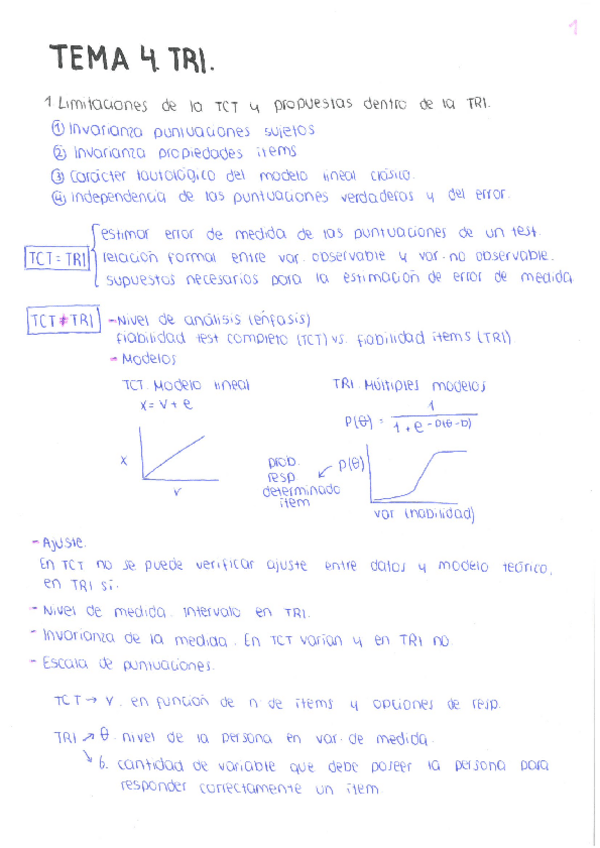 1
TEMA 4. TRI.
1 Limitaciones de la TCT y propuestas dentro de la TRI.
① Invarianza puntuaciones sujetos
② Invarianza propiedades items
③ Carácter tautológico del modelo lineal clásico.
④ Independencia de las puntuaciones verdaderas y del error.
estimar error de medida de las puntuaciones de un test.
TCT = TRI relación formal entre var. observable y var. no observable.
supuestos necesarios para la estimación de error de medida
TCT ≠ TRI - Nivel de análisis (énfasis)
fiabilidad test completo (TCT) vs. fiabilidad items (TRI).
- Modelos
TCT. Modelo lineal
x = v + e
x
v
TRI. Múltiples modelos
P(θ) = 1 / 1 + e^-D(θ-b)
prob. resp. determinado item
P(θ)
var (habilidad)
- Ajuste.
En TCT no se puede verificar ajuste entre datos y modelo teórico,
en TRI sí.
- Nivel de medida. Intervalo en TRI.
- Invarianza de la medida. En TCT varían y en TRI no
- Escala de puntuaciones.
TCT → V. en función de n. de items y opciones de resp.
TRI ↗ θ. nivel de la persona en var. de medida.
↘ b. cantidad de variable que debe poseer la persona para
responder correctamente un item